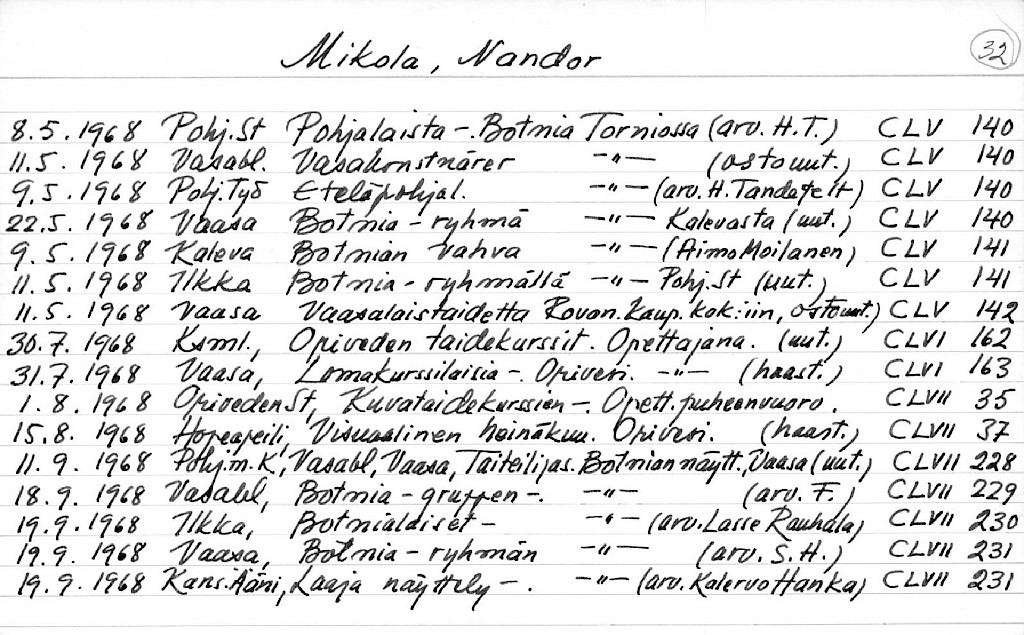 Mikola, Nandor 32
8.5.1968 Pohj.St Pohjalaista -. Botnia Torniossa (arv. H.T.) CLV 140
11.5.1968 Vasabl. Vasakonstnärer -"- (ostouut.) CLV 140
9.5.1968 Pohj.Työ Eteläpohjal. -"- (arv. H. Tandefelt) CLV 140
22.5.1968 Vaasa Botnia-ryhmä -"- Kalevasta (uut.) CLV 140
9.5.1968 Kaleva Botnian vahva -"- (Aimo Moilanen) CLV 141
11.5.1968 Ilkka Botnia-ryhmällä -"- Pohj.St (uut.) CLV 141
11.5.1968 Vaasa Vaasalaistaidetta Rovan. kaup. kok:iin, ostouut.) CLV 142
30.7.1968 Ksml., Oriveden taidekurssit. Opettajana. (uut.) CLVI 162
31.7.1968 Vaasa, Lomakurssilaisia -. Orivesi. -"- (haast.) CLVI 163
1.8.1968 Oriveden St, Kuvataidekurssien -. Opett. puheenvuoro. CLVII 35
15.8.1968 Hopeapeili, Visuaalinen heinäkuu. Orivesi. (haast.) CLVII 37
11.9.1968 Pohj.m.K, Vasabl, Vaasa, Taiteilijas. Botnian näytt., Vaasa (uut.) CLVII 228
18.9.1968 Vasabl, Botnia-gruppen -. -"- (arv. F.) CLVII 229
19.9.1968 Ilkka, Botnialaiset - -"- (arv. Lasse Rauhala) CLVII 230
19.9.1968 Vaasa, Botnia-ryhmän -"- (arv. S.H.) CLVII 231
19.9.1968 Kans.Ääni, Laaja näyttely -. -"- (arv. Kalervo Hanka) CLVII 231